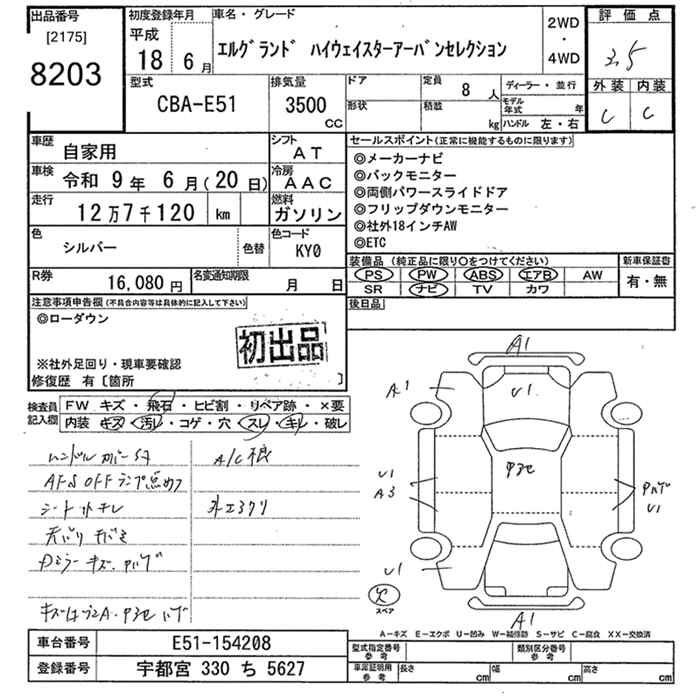 出品番号
[2175]
8203
初度登録年月
平成
18 6月
車名・グレード
エルグランド ハイウェイスターアーバンセレクション
2WD
・
4WD
評価点
3.5
外装 内装
C C
型式
CBA-E51
排気量
3500
CC
ドア
形状
定員
8人
積載
kg
ディーラー・並行
モデル年式 年
ハンドル 左・右
車歴
自家用
シフト
AT
車検
令和 9年 6月(20日)
冷房
AAC
走行
12万7千120 km
燃料
ガソリン
色
シルバー
色替
色コード
KY0
R券
16,080円
名変通知期限 月 日
セールスポイント(正常に機能するものに限ります)
◎メーカーナビ
◎バックモニター
◎両側パワースライドドア
◎フリップダウンモニター
◎社外18インチAW
◎ETC
装備品 (純正品に限り〇をつけてください)
PS PW ABS エアB AW
SR ナビ TV カワ
新車保証書
有・無
後日品
注意事項申告欄(不具合内容等は具体的に記入して下さい)
◎ローダウン
初出品
※社外足回り・現車要確認
修復歴 有〔箇所 〕
検査員
記入欄
FW キズ・飛石・ヒビ割・リペア跡・×要
内装 キズ・汚レ・コゲ・穴・スレ・キレ・破レ
ハンドルカバーSブ
A/C根
AFS OFFランプ点めつ
シートカキレ
外エラクリ
天バリキバミ
Dミラーキズ、ヤバブ
A1
A1
U1
U1
A3
U1
U1
A1
スペア
A-キズ E-エクボ U-凹み W-補修跡 S-サビ C-腐食 XX-交換済
車台番号
E51-154208
登録番号
宇都宮 330 ち 5627
型式指定番号
参考
類別区分番号
参考
車庫証明用
参考
長さ cm
幅 cm
高さ cm